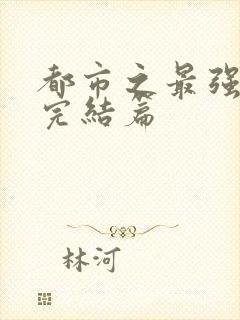 都市之最强
完结篇
林河